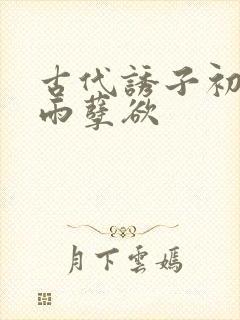 古代誘子初
雨孽欲
月下雲嫣